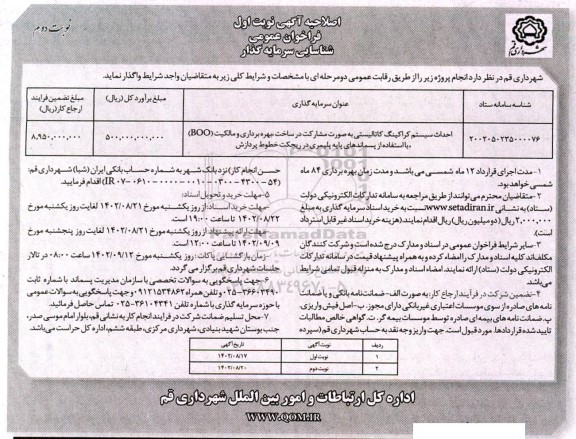 اصلاحیه آگهی نوبت اول
فراخوان عمومی
شناسایی سرمایه گذار
نوبت دوم
شهرداری قم
شهرداری قم در نظر دارد انجام پروژه زیر را از طریق رقابت عمومی دو مرحله ای با مشخصات و شرایط کلی زیر به متقاضیان واجد شرایط واگذار نماید.
شناسه سامانه ستاد
عنوان سرمایه گذاری
مبلغ برآورد کل (ریال)
مبلغ تضمین فرایند ارجاع کار (ریال)
۲۰۰۲۰۵۰۲۳۵۰۰۰۰۷۶
احداث سیستم کراکینگ کاتالیستی به صورت مشارکت در ساخت، بهره برداری و مالکیت (BOO)
، با استفاده از پسماندهای پایه پلیمری در ریجکت خطوط پردازش
۵۰۰,۰۰۰,۰۰۰,۰۰۰
۸,۹۵۰,۰۰۰,۰۰۰
۱-مدت اجرای قرارداد ۱۲ ماه شمسی می باشد و مدت زمان بهره برداری ۸۴ ماه
شمسی خواهد بود.
۲-متقاضیان محترم می توانند از طریق مراجعه به سامانه تدارکات الکترونیکی دولت
(ستاد)، به نشانی www.setadiran.ir نسبت به خرید اسناد سرمایه گذاری به مبلغ
۲,۰۰۰,۰۰۰ ریال (دو میلیون ریال) اقدام نمایند. (هزینه خرید اسناد غیر قابل استرداد
است)
۳-سایر شرایط فراخوان عمومی در اسناد و مدارک درج شده است و شرکت کنندگان
مکلف اند کلیه اسناد و مدارک را امضاء کرده و به همراه پیشنهاد قیمت در سامانه تدارکات
الکترونیکی دولت (ستاد) ارائه نمایند. امضاء اسناد و مدارک به منزله قبول تمامی شرایط
می باشد.
۴-تضمین شرکت در فرآیند ارجاع کار: به صورت الف-ضمانت نامه بانکی و یا ضمانت
نامه های صادره از سوی موسسات اعتباری غیر بانکی دارای مجوز. ب-اصل فیش واریزی.
پ. ضمانت نامه های بیمه ای صادره توسط موسسات بیمه گر. ت. گواهی خالص مطالبات
تایید شده قراردادها. مورد قبول است. جهت واریز وجه نقد به حساب شهرداری قم (سپرده
حسن انجام کار) نزد بانک شهر به شماره حساب بانکی ایران (شبا) شهرداری قم:
اقدام فرمایید.
۵-مهلت خرید و تحویل اسناد:
مهلت خرید اسناد: از روز یکشنبه مورخ ۱۴۰۲/۰۸/۲۱ لغایت روز یکشنبه مورخ
ساعت ۱۹:۰۰ است.
مهلت ارائه پیشنهاد از روز یکشنبه مورخ ۱۴۰۲/۰۸/۲۱ لغایت روز پنجشنبه مورخ
۱۴۰۲/۰۹/۰۹ تا ساعت ۱۲:۰۰ است.
زمان بازگشایی پاکات: روز یکشنبه مورخ ۱۴۰۲/۰۹/۱۲ ساعت ۰۸:۰۰ در تالار
جلسات شهرداری قم برگزار می گردد.
۶-جهت پاسخگویی به سوالات تخصصی با سازمان مدیریت پسماند با شماره ثابت
و تلفن همراه ۰۹۱۲۱۵۳۴۸۶۲ و جهت پاسخگویی به سوالات عمومی
با حوزه سرمایه گذاری با شماره تلفن ۳۶۱۰۴۳۴۱-۰۲۵ تماس حاصل فرمائید.
۷-محل تسلیم ضمانت شرکت در فرایند انجام کار به نشانی قم، بلوار امام موسی صدر،
جنب بوستان شهید بنیادی، شهرداری مرکزی، طبقه ششم، اداره کل حراست می باشد.
ردیف
نوبت آگهی
تاریخ آگهی
۱
نوبت اول
۱۴۰۲/۰۸/۱۷
۲
نوبت دوم
۱۴۰۲/۰۸/۲۰
اداره کل ارتباطات و امور بین الملل شهرداری قم
WWW.QOM.IR